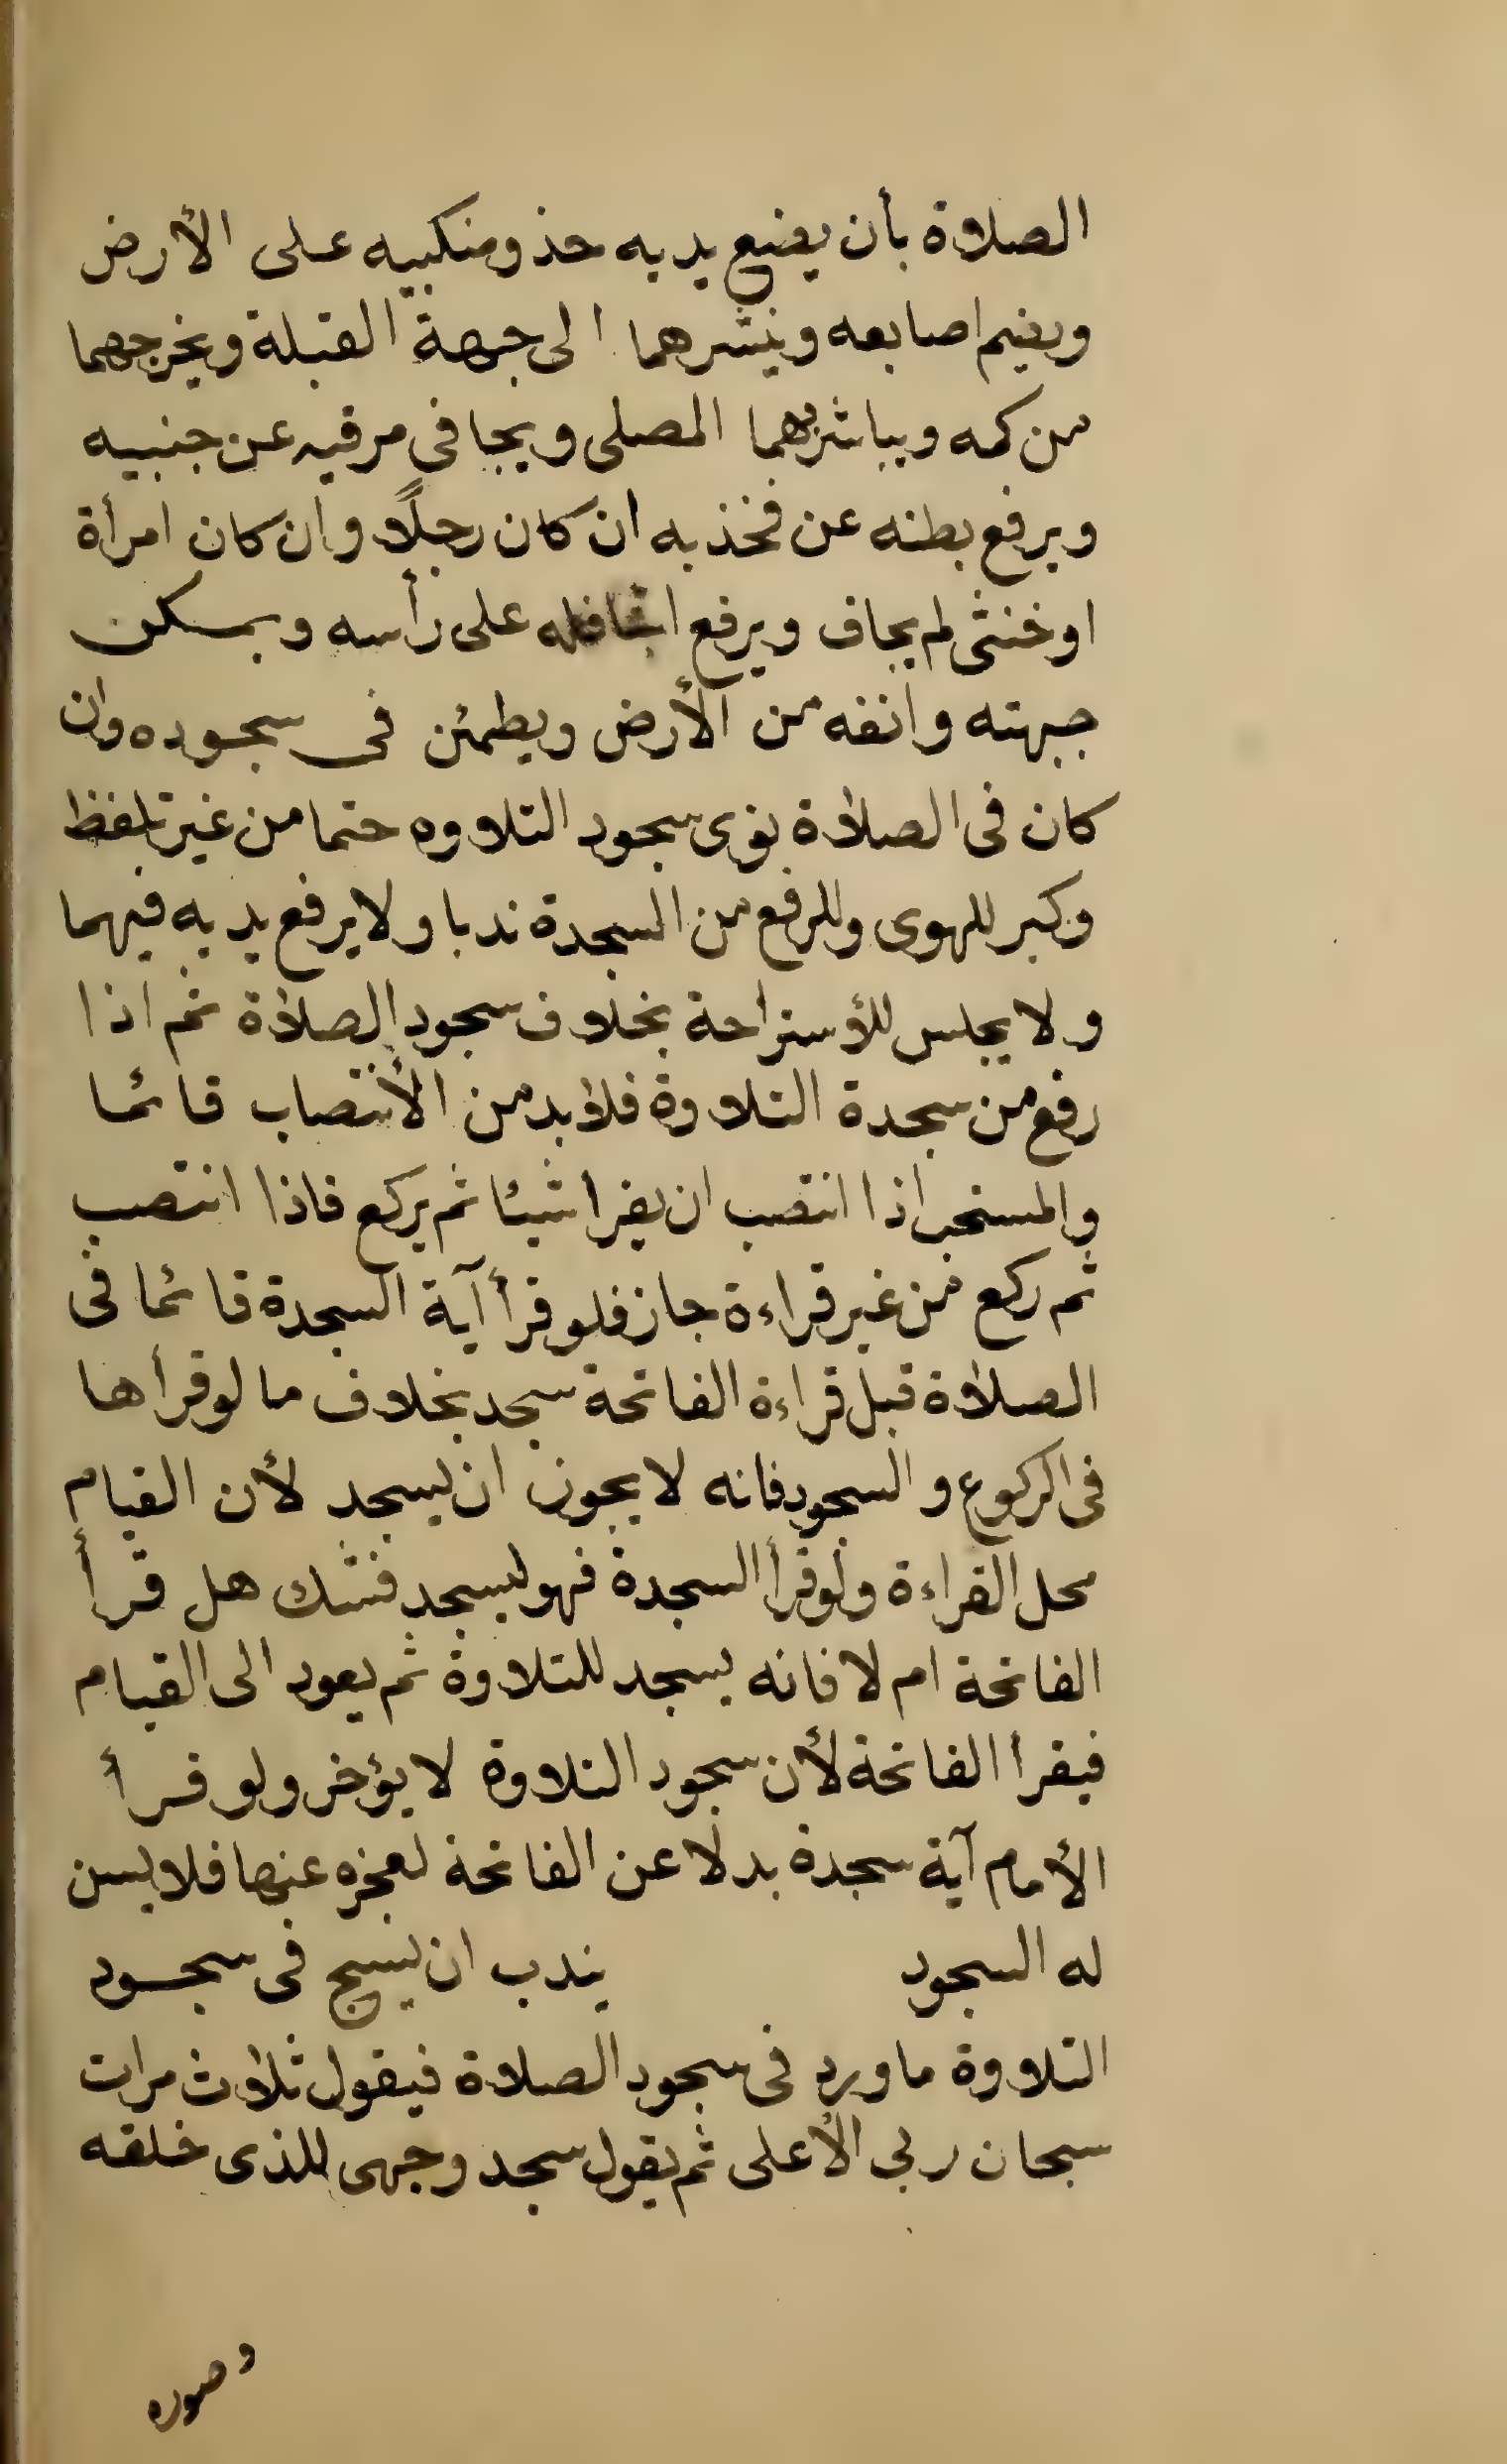 الصلاة بأن يضع يديه حذو منكبيه على الأرض
ويضم اصابعه وينشرهما الى جهة القبلة ويخرجهما
من كمه ويباشر بهما المصلى ويجافى مرفيه عن جنبيه
ويرفع بطنه عن فخذيه ان كان رجلًا وان كان امرأة
او خنثى لم يجاف ويرفع على رأسه ويمسكن
جبهته وانفه من الأرض ويطمئن فى سجوده وان
كان فى الصلاة نوى سجود التلاوه حتما من غير تلفظ
وكبر للهوى وللرفع من السجدة ندبا ولا يرفع يديه فيهما
ولا يجلس للأستراحة بخلاف سجود الصلاة ثم اذا
رفع من سجدة التلاوة فلابد من الأنتصاب قائما
والمستحب اذا انتصب ان يقرا شيئا ثم يركع فاذا انتصب
ثم ركع من غير قراءة جاز فلو قرأ آية السجدة قائما فى
الصلاة قبل قراءة الفاتحة سجد بخلاف ما لو قرأها
فى الركوع و السجود فانه لا يجوز ان يسجد لأن القيام
محل القراءة ولو قرأ السجدة فهو ليسجد فشك هل قرأ
الفاتحة ام لا فانه يسجد للتلاوة ثم يعود الى القيام
فيقرأ الفاتحة لأن سجود التلاوة لا يؤخر ولو قرأ
الأمام آية سجدة بدلا عن الفاتحة لعجزه عنها فلا يسن
له السجود يندب ان يسبح فى سجود
التلاوة ما ورد فى سجود الصلاة فيقول ثلاث مرات
سبحان ربى الأعلى ثم يقول سجد وجهى للذى خلقه
وصوره